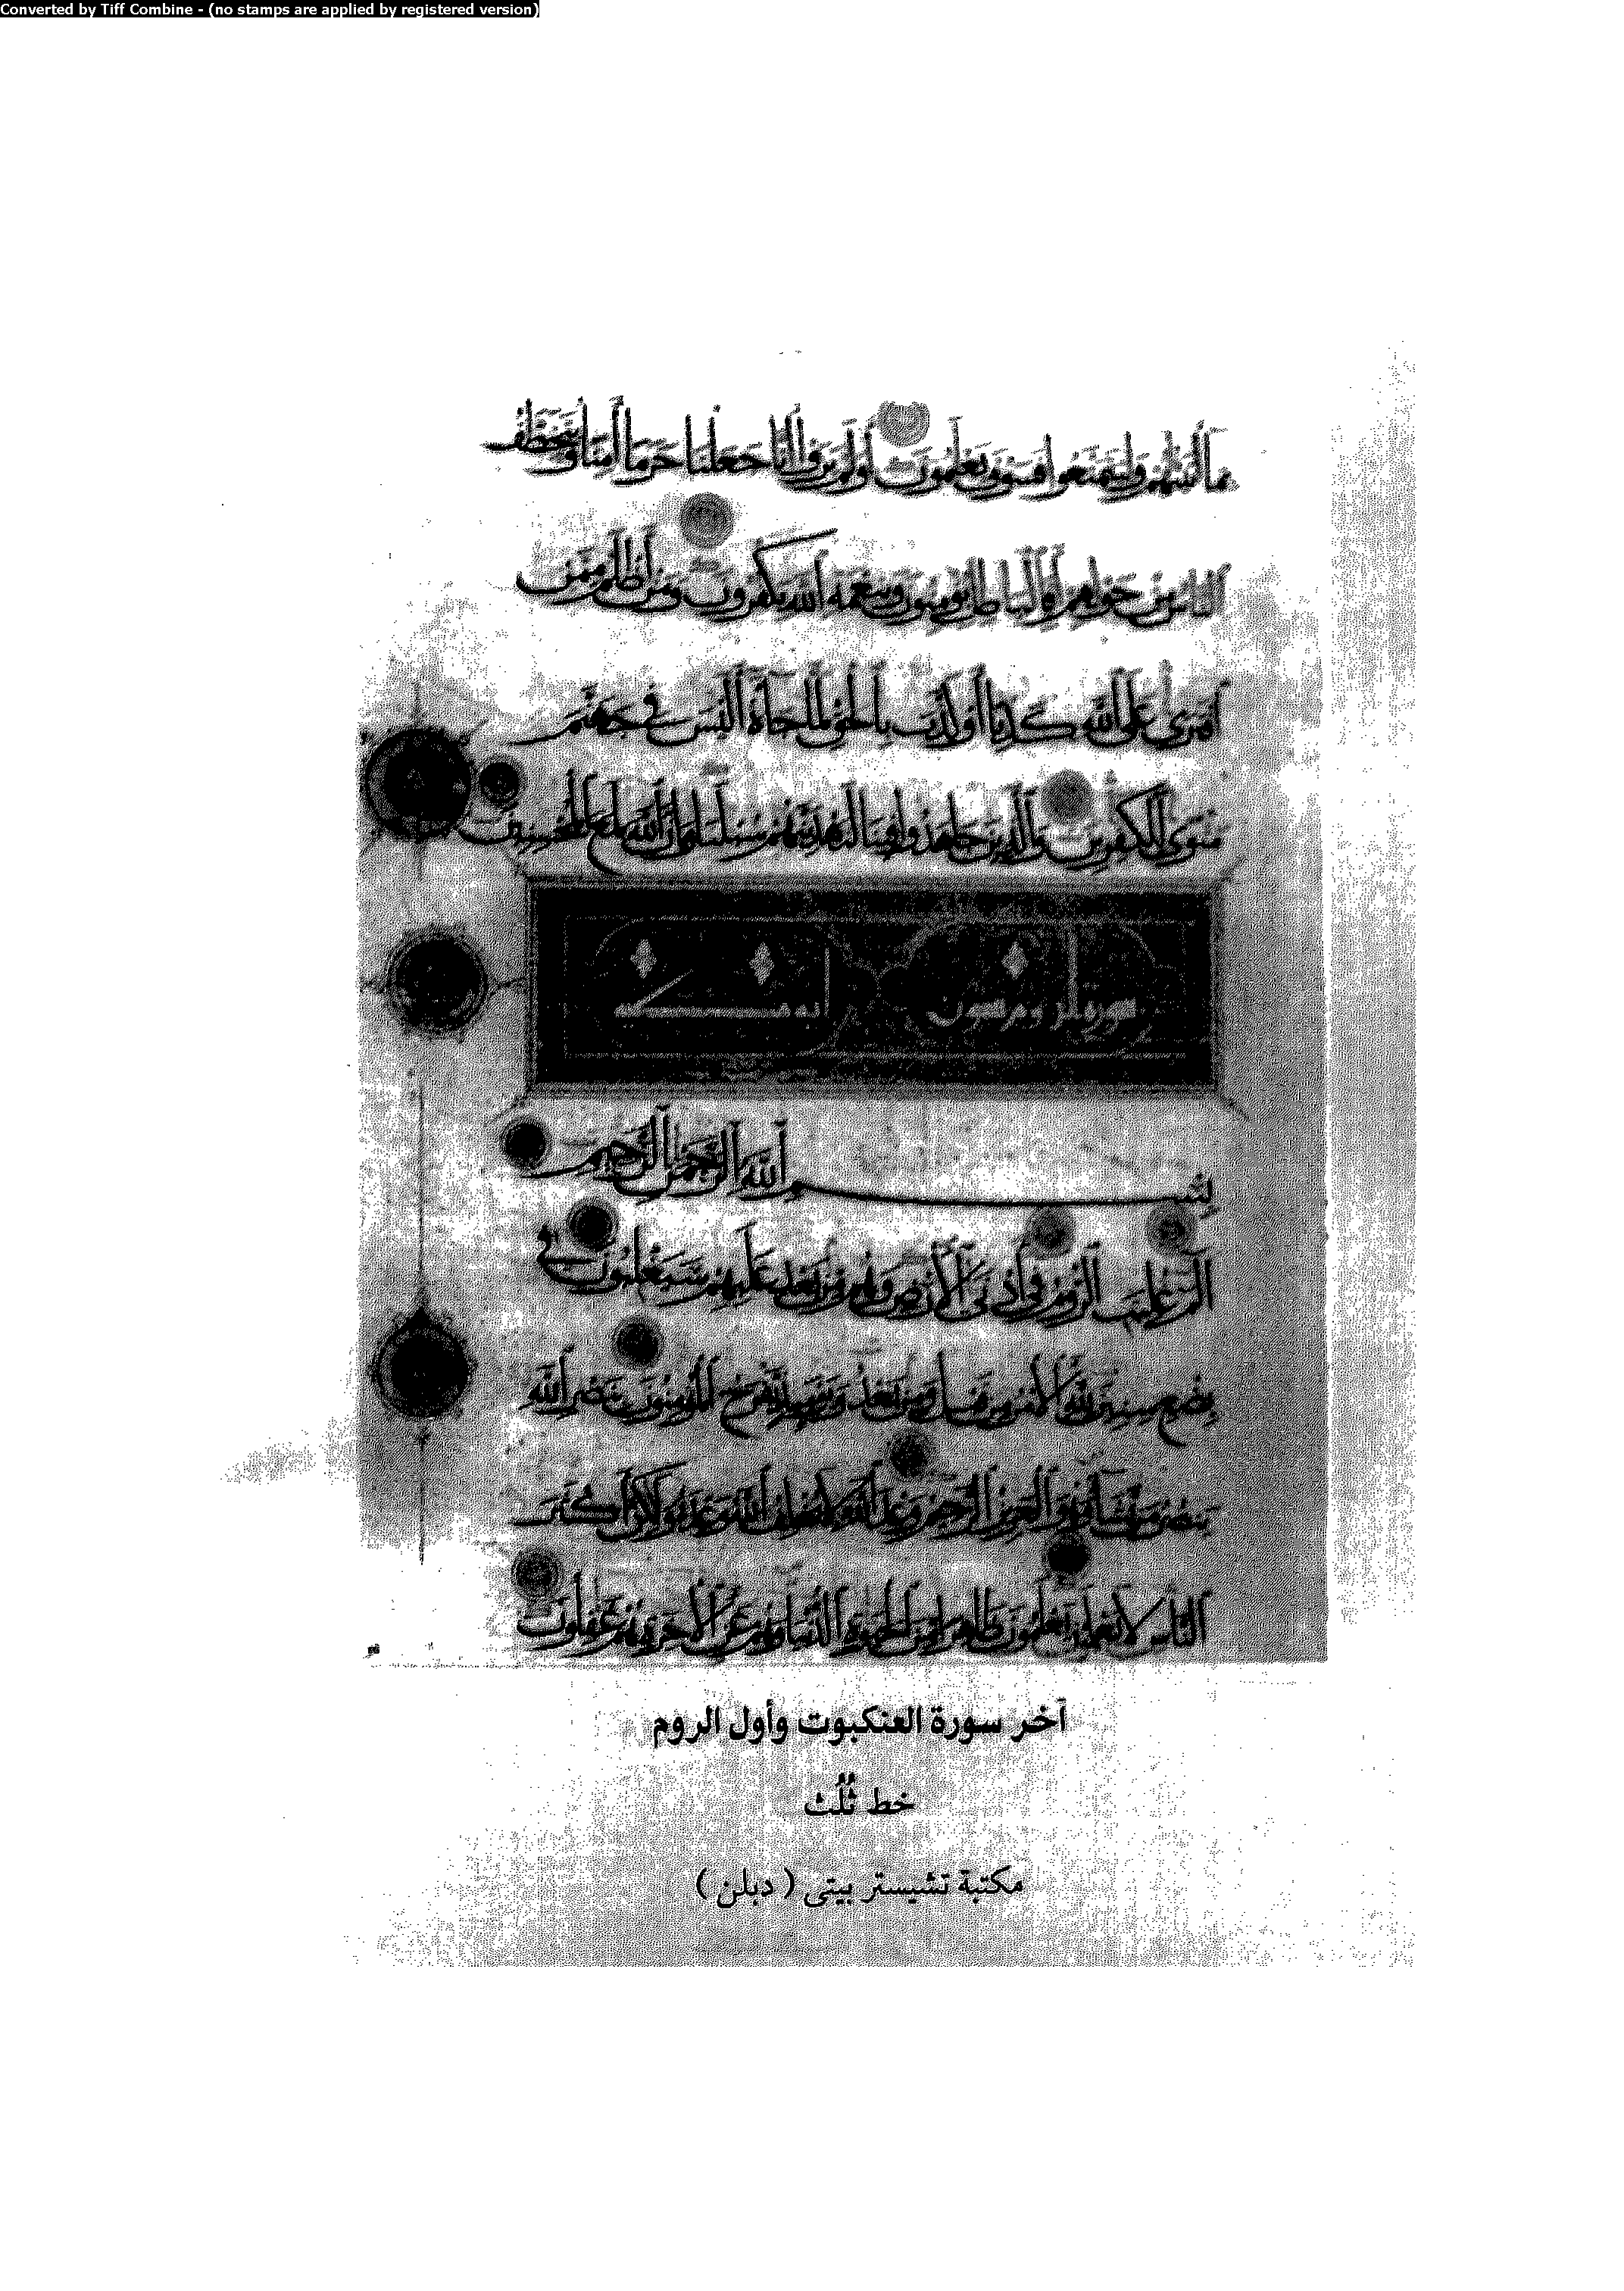 Converted by Tiff Combine - (no stamps are applied by registered version)
بما آتيناهم وليتمتعوا فسوف يعلمون أولم يروا أنا جعلنا حرما آمنا ويتخطف
الناس من حولهم أفبالباطل يؤمنون وبنعمة الله يكفرون ومن أظلم ممن
افترى على الله كذبا أو كذب بالحق لما جاءه أليس في جهنم
مثوى للكفرين والذين جاهدوا فينا لنهدينهم سبلنا وإن الله لمع المحسنين
سورة الروم ستون آية مكية
بسم الله الرحمن الرحيم
الم غلبت الروم في أدنى الأرض وهم من بعد غلبهم سيغلبون في
بضع سنين لله الأمر من قبل ومن بعد ويومئذ يفرح المؤمنون بنصر الله
ينصر من يشاء وهو العزيز الرحيم وعد الله لا يخلف الله وعده ولكن أكثر
الناس لا يعلمون يعلمون ظاهرا من الحيوة الدنيا وهم عن الآخرة هم غفلون
آخر سورة العنكبوت وأول الروم
خط ثلث
مكتبة تشيستر بيتى ( دبلن )